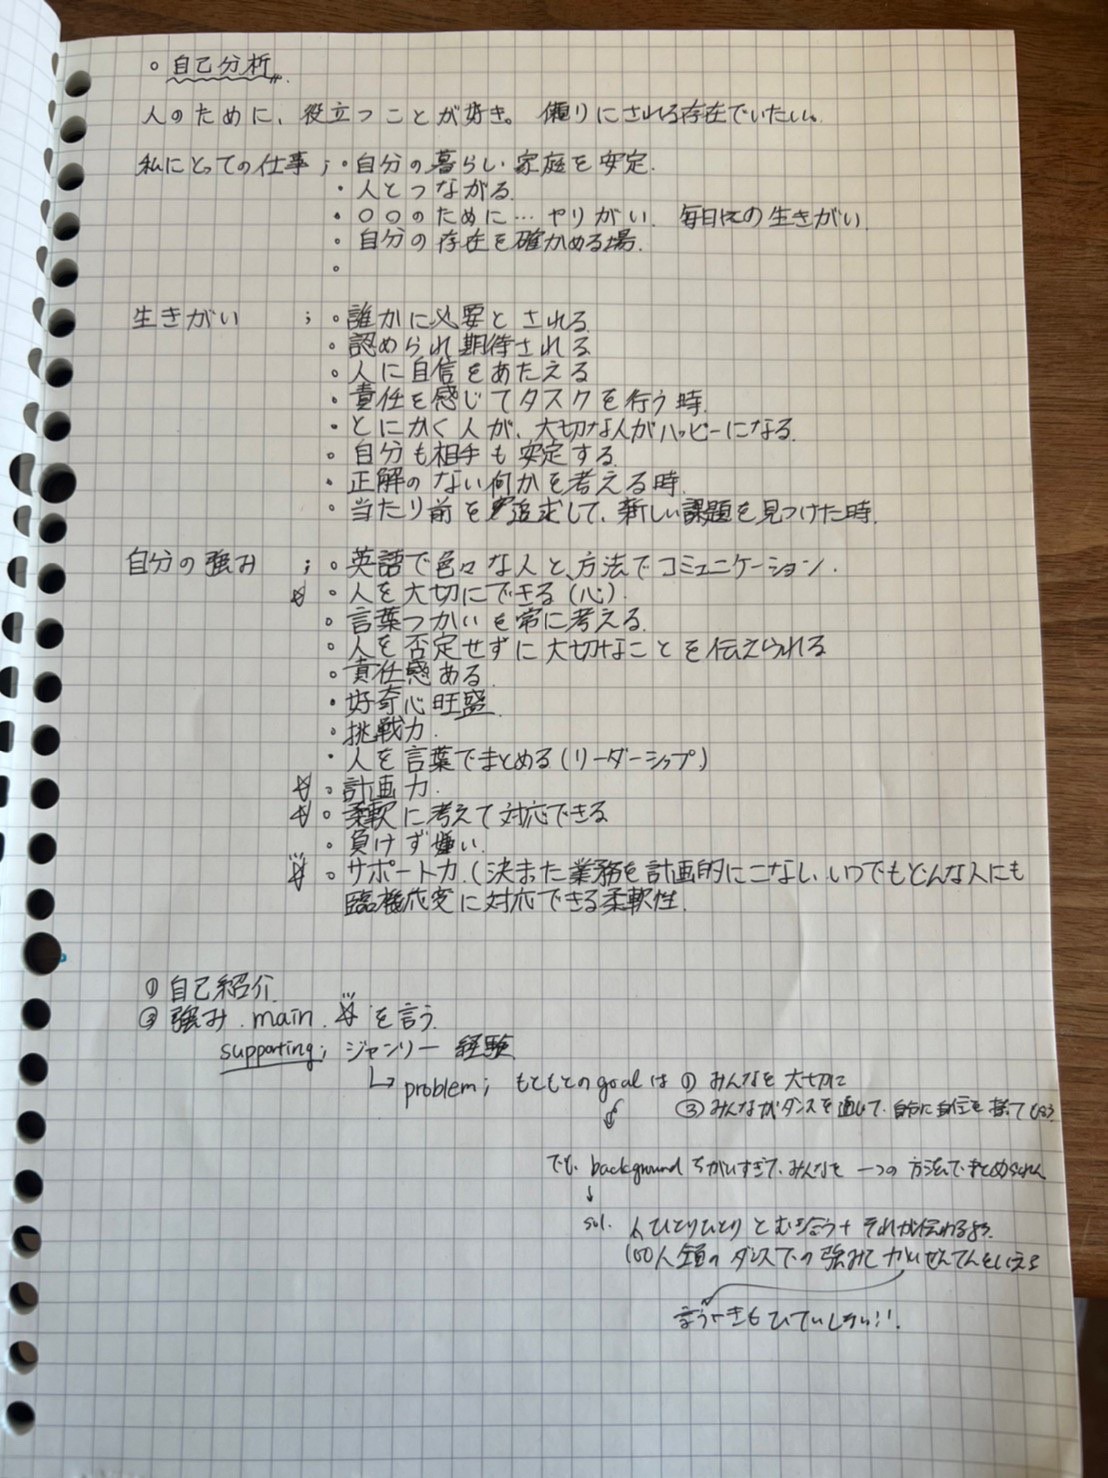 。自己分析
人のために、役立つことが好き。 頼りにされる存在でいたい。
私にとっての仕事 ; ・自分の暮らし 家庭を安定.
・人とつながる.
・〇〇のために… ヤリがい. 毎日の生きがい.
・自分の存在を確かめる場.
・
生きがい ; ・誰かに必要とされる.
・認められ期待される
・人に自信をあたえる
・責任を感じてタスクを行う時.
・とにかく人が、大切な人がハッピーになる.
・自分も相手も安定する.
・正解のない何かを考える時.
・当たり前を追求して、新しい課題を見つけた時.
自分の強み ; ・英語で色々な人と、方法でコミュニケーション.
☆ ・人を大切にできる(心).
・言葉つかいを常に考える.
・人を否定せずに大切なことを伝えられる
・責任感ある.
・好奇心旺盛.
・挑戦力.
・人を言葉でまとめる(リーダーシップ)
☆ ・計画力.
☆ ・柔軟に考えて対応できる
・負けず嫌い.
☆ ・サポート力.(決また業務を計画的にこなし、いつでもどんな人にも
臨機応変に対応できる柔軟性.
① 自己紹介.
② 強み. main. ☆ を言う.
supporting; ジャンリー 経験
↳ problem; もともとのgoalは ① みんなを大切に
③ みんながダンスを通して、自分に自信を持てしよう.
でも、background ちがいすぎて、みんなを 一つの方法でまとめられん
↓
sol. 人ひとりひとりとむき合う + それが伝わるよう.
100人全員のダンスでの強みと かいぜんてんをいえる
言うべきもひていしない!!.